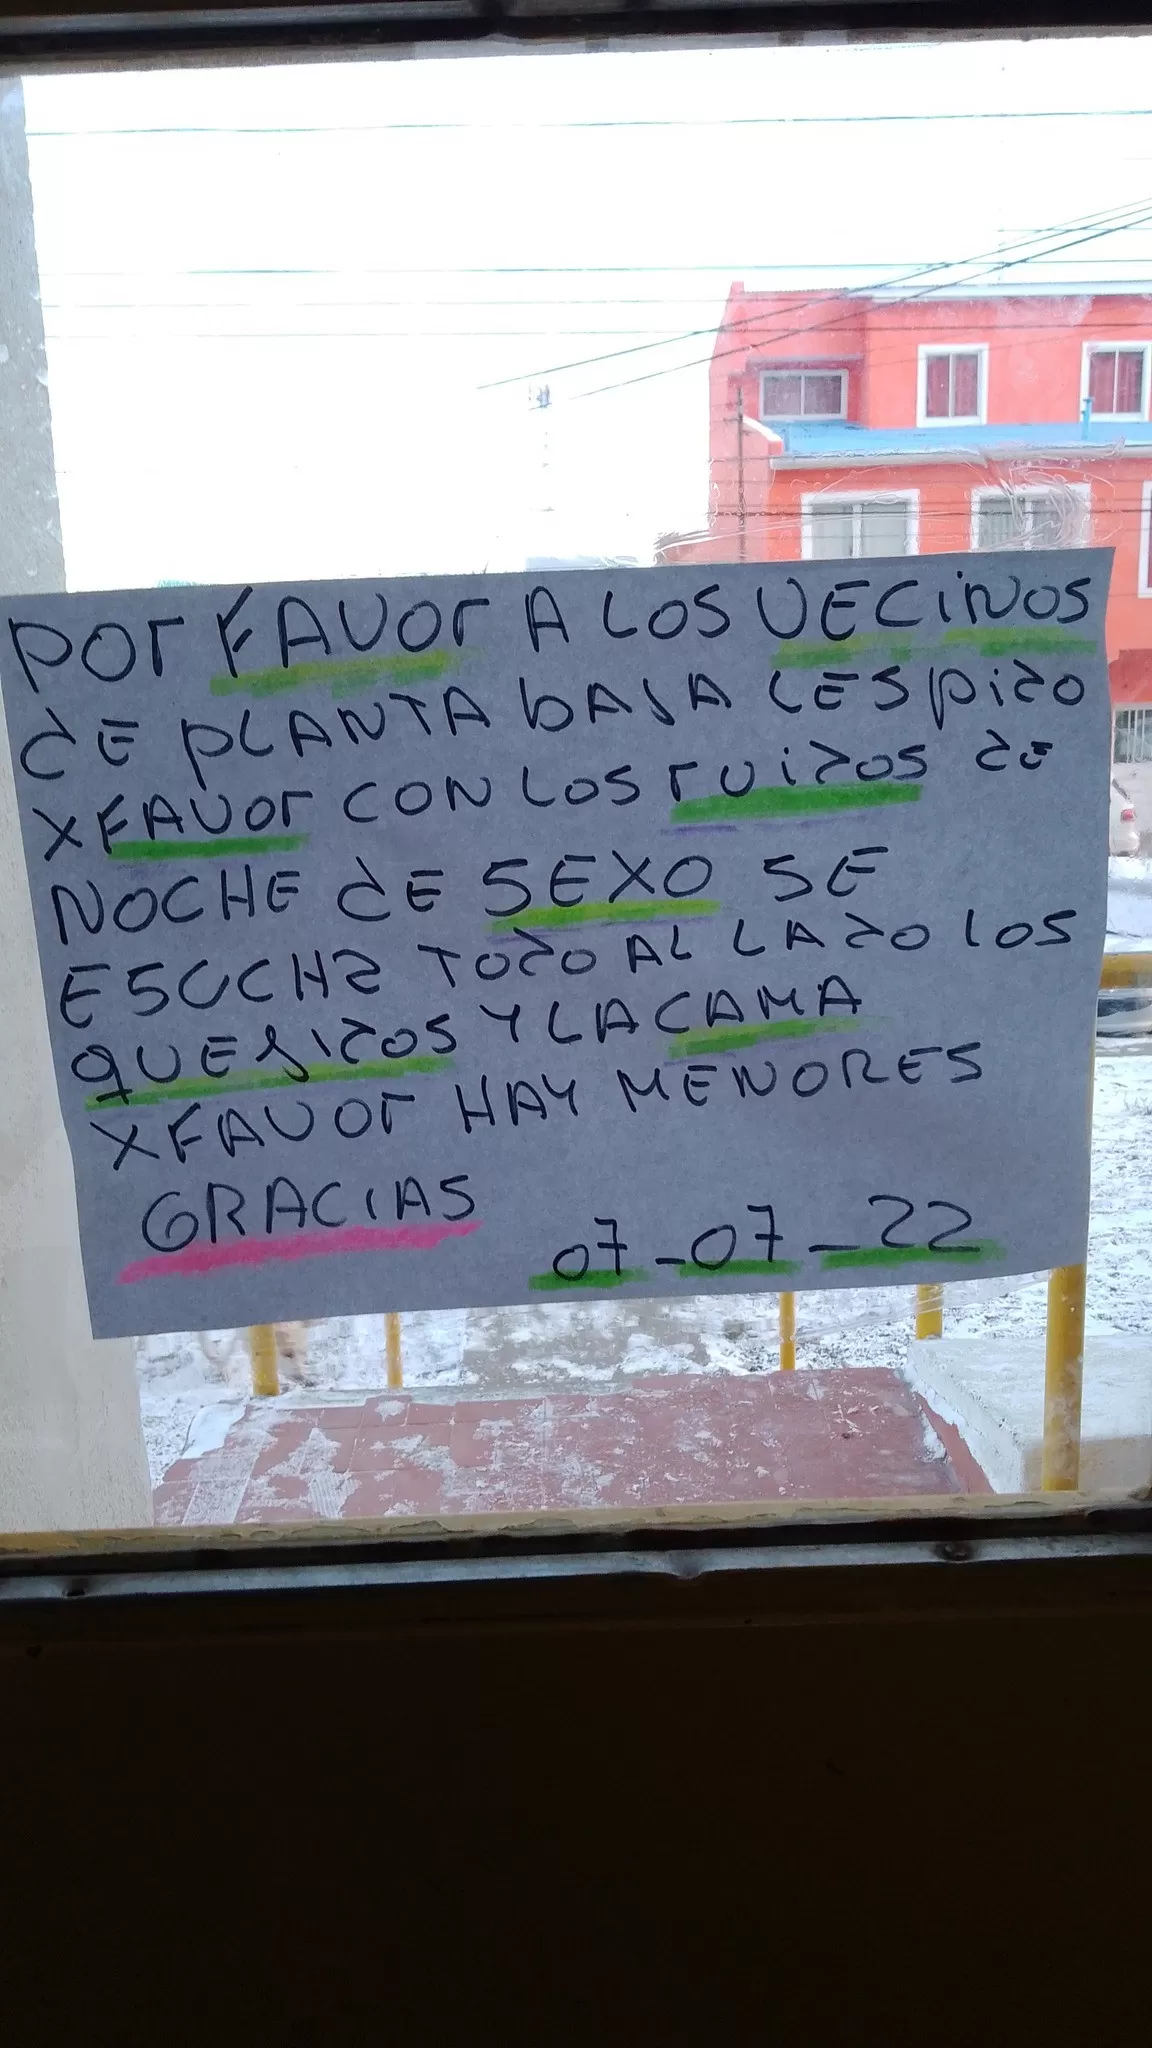 POr FAVOr A LOS VECiNOS
dE PLANTA bAJA LES PidO
XFAVOr CON LOS ruidos dE
NOCHE dE SEXO SE
ESUCHa TOdO AL LAdO LOS
QUEJidOS Y LA CAMA
XFAVOr HAY MENORES
GRACIAS
07-07-22